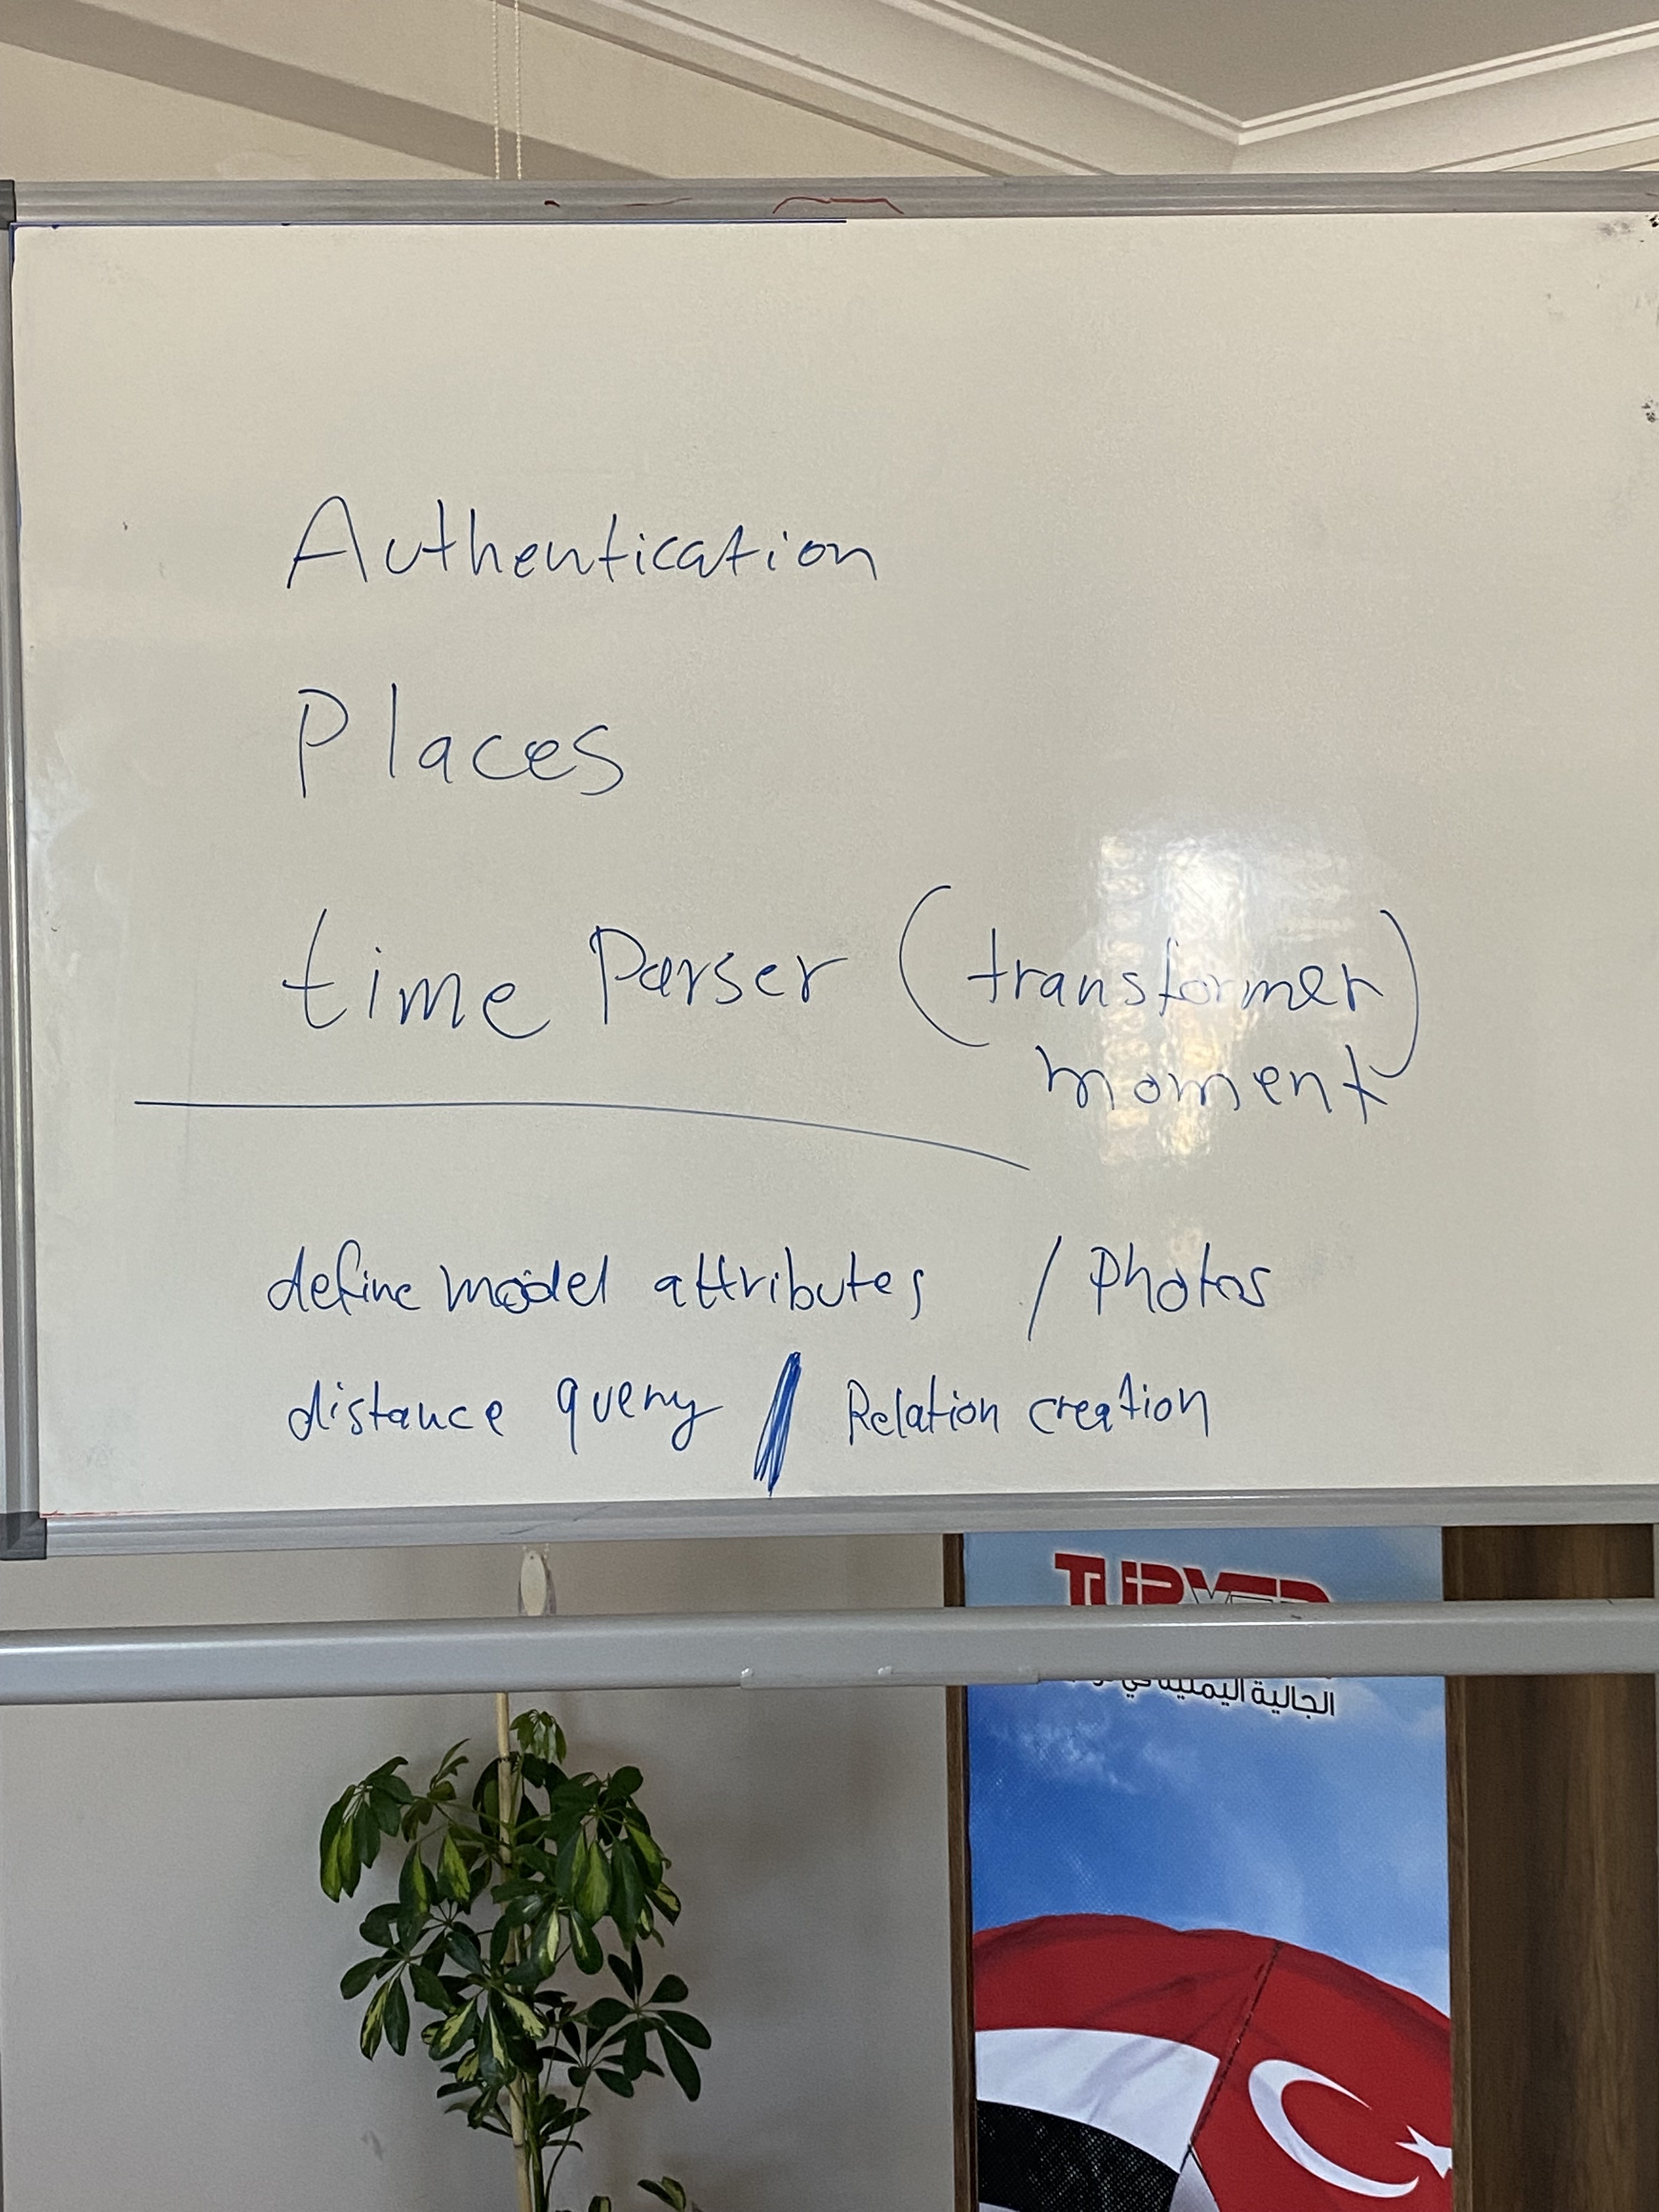 Authentication
Places
time Parser (transformer)
moment
define model attributes / Photos
distance query / Relation creation
الجالية اليمنية في